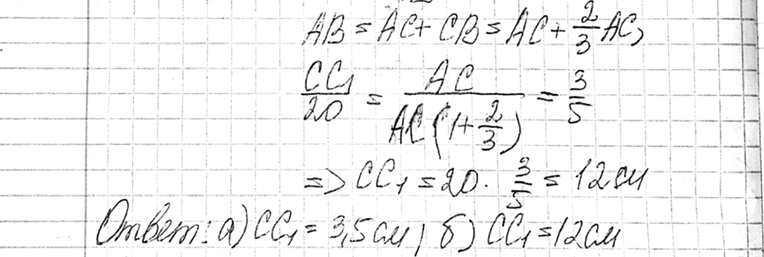 AB = AC + CB = AC + 2/3 AC,
CC₁/20 = AC/AC(1+2/3) = 3/5
=> CC₁ = 20 · 3/5 = 12 см
Ответ: а) CC₁ = 3,5 см, б) CC₁ = 12 см